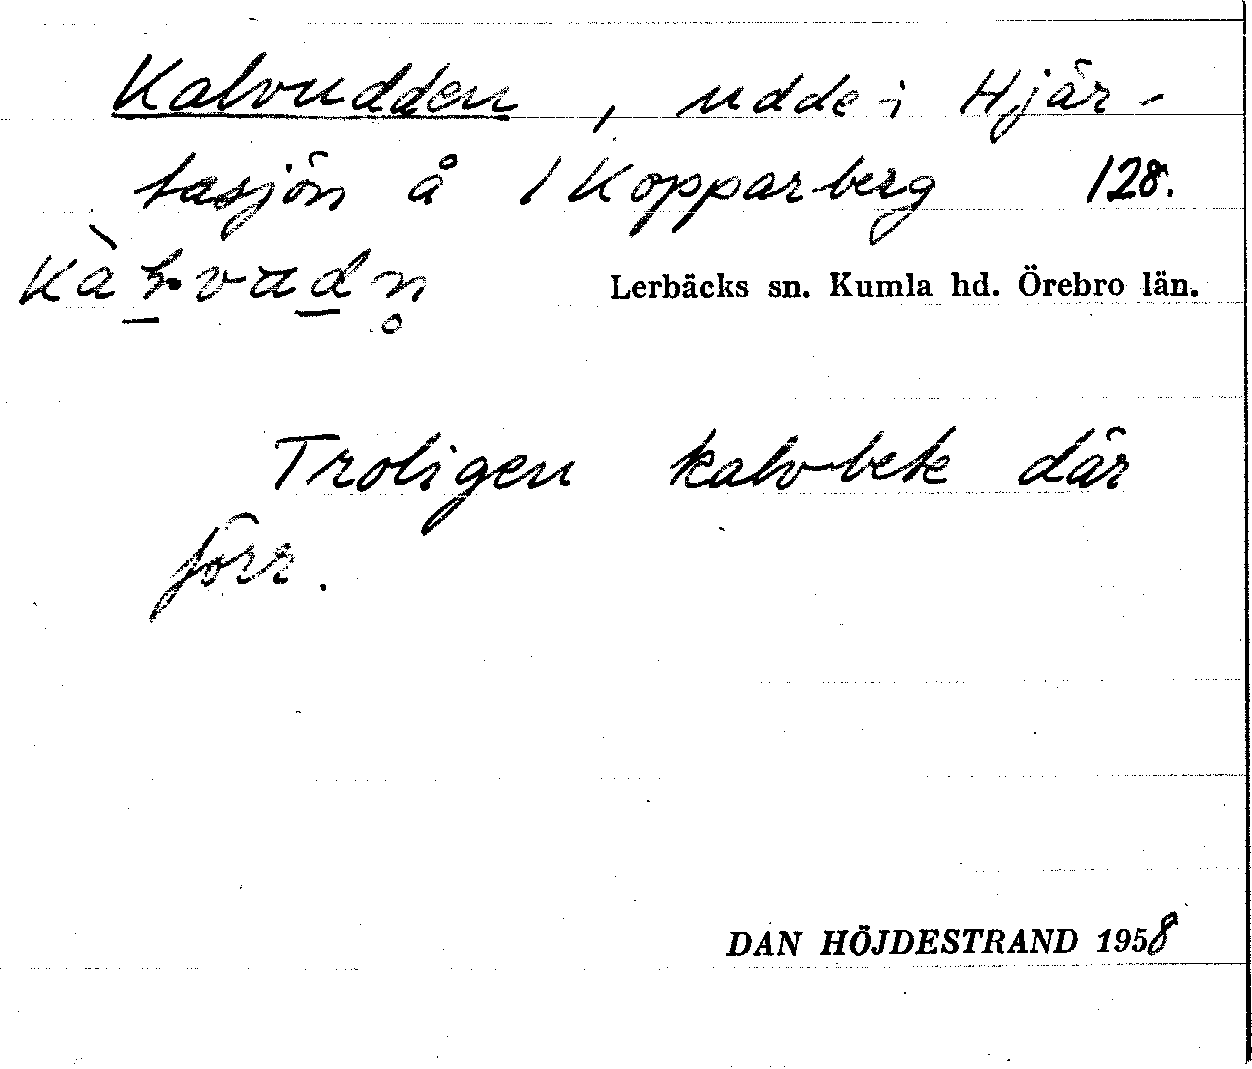 Kalvudden, udde i Hjär-
tasjön å 1 Kopparberg 128.
Lerbäcks sn. Kumla hd. Örebro län.
Troligen kalvbete där
förr.
DAN HÖJDESTRAND 1958